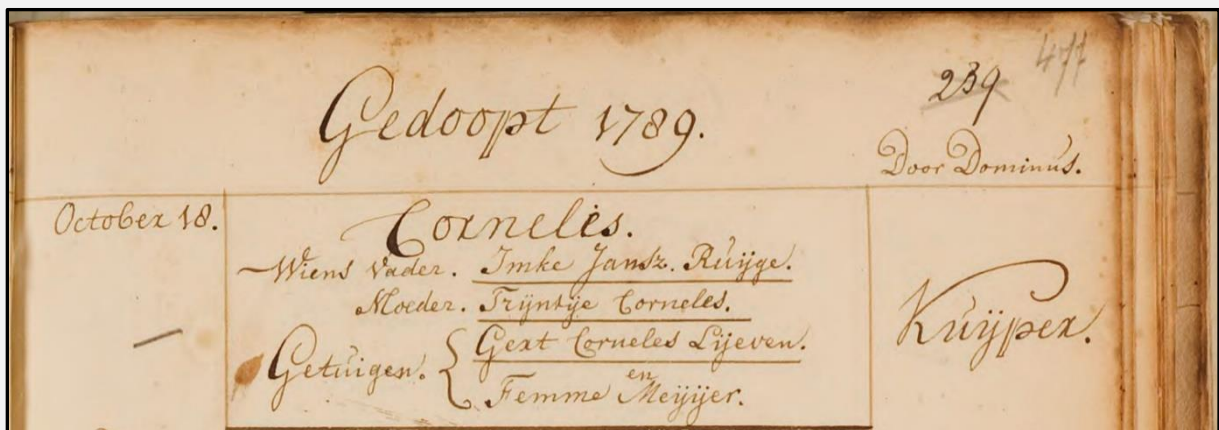 477
239
Gedoopt 1789.
Door Dominus.
October 18.
Cornelis.
Wiens Vader. Imke Jansz. Ruijge.
Moeder. Trijntje Corneles.
Getuigen. { Gert Corneles Lijeven.
en
Femme Meijijer.
Kuijper.